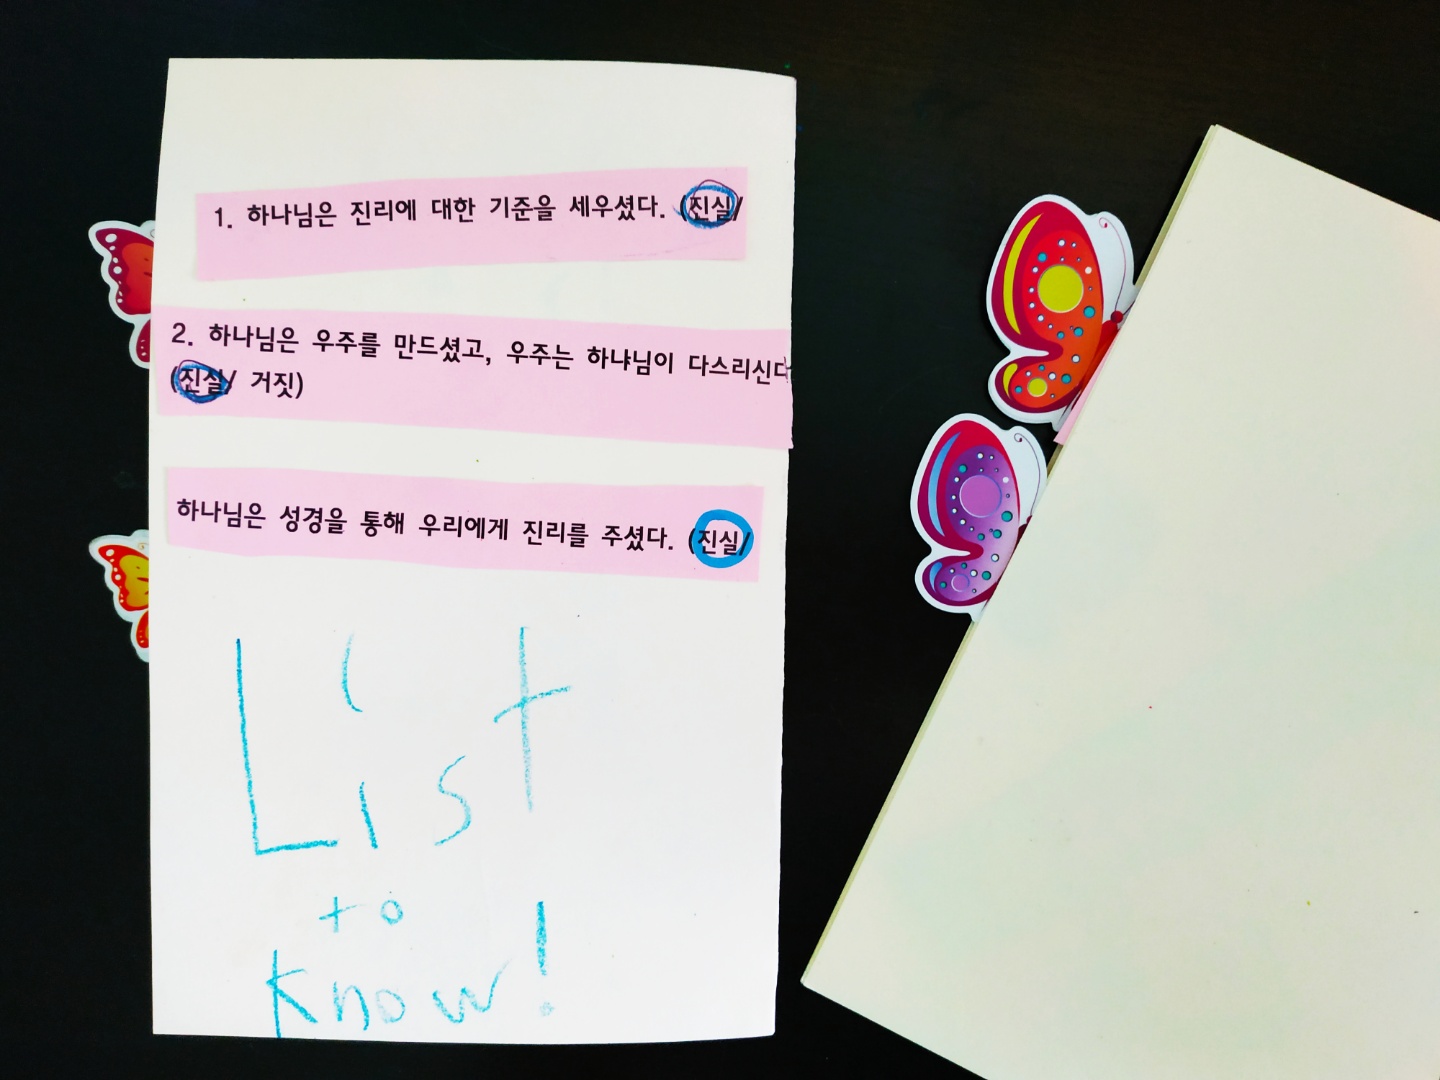 1. 하나님은 진리에 대한 기준을 세우셨다. (진실/
2. 하나님은 우주를 만드셨고, 우주는 하냐님이 다스리신다
(진실/ 거짓)
하나님은 성경을 통해 우리에게 진리를 주셨다. (진실/
List
to
know!